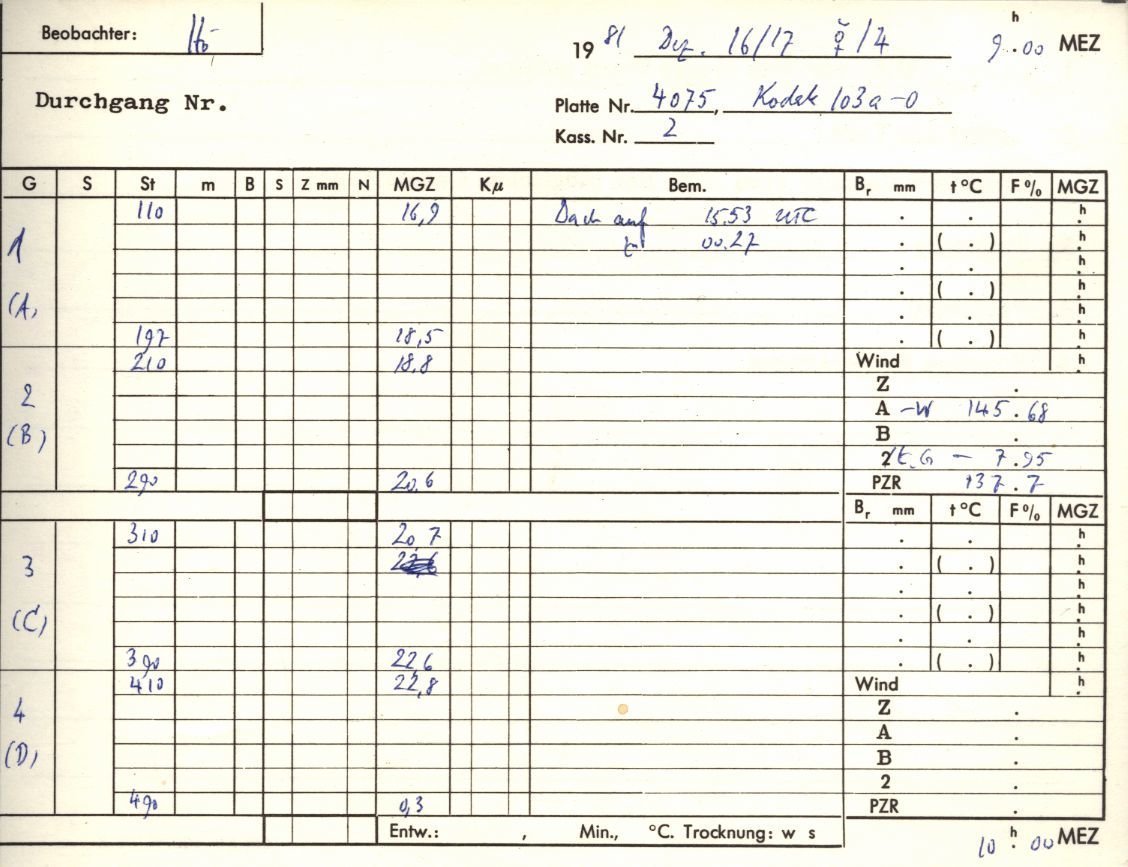 Beobachter:
19 81 Dez. 16/17 /4 9 h .00 MEZ
Durchgang Nr.
Platte Nr. 4075, Kodak 103a-O
Kass. Nr. 2
G S St m B S Z mm N MGZ Kμ Bem. Br mm t °C F% MGZ
1 110 16,9 Dach auf 15.53 UTC . . h.
zu 00.27 . ( . ) h.
. . h.
(A) . ( . ) h.
. . h.
197 18,5 . ( . ) h.
210 18,8 Wind h.
2 Z .
A -W 145.68
(B) B .
2 - 7.95
290 20,6 PZR 137.7
Br mm t °C F% MGZ
310 20,7 . . h.
3 . ( . ) h.
. . h.
(C) . ( . ) h.
. . h.
390 22,6 . ( . ) h.
410 22,8 Wind h.
4 Z .
A .
(D) B .
2 .
490 0,3 PZR .
Entw.: , Min., °C. Trocknung: w s
10 h .00 MEZ